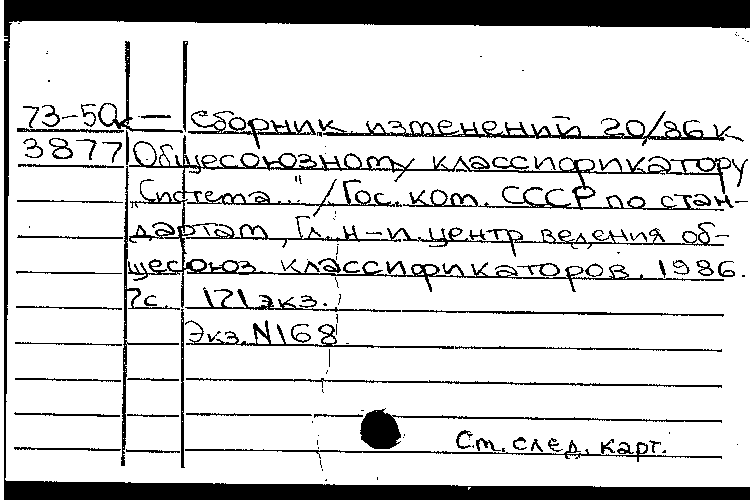 73-50к — Сборник изменений 20/86 к
3877 Общесоюзному классификатору
"Система..." / Гос. ком. СССР по стан-
дартам, Гл. н-и. центр ведения об-
щесоюз. классификаторов. 1986.
7с. 171 экз.
Экз. N168
См. след. карт.